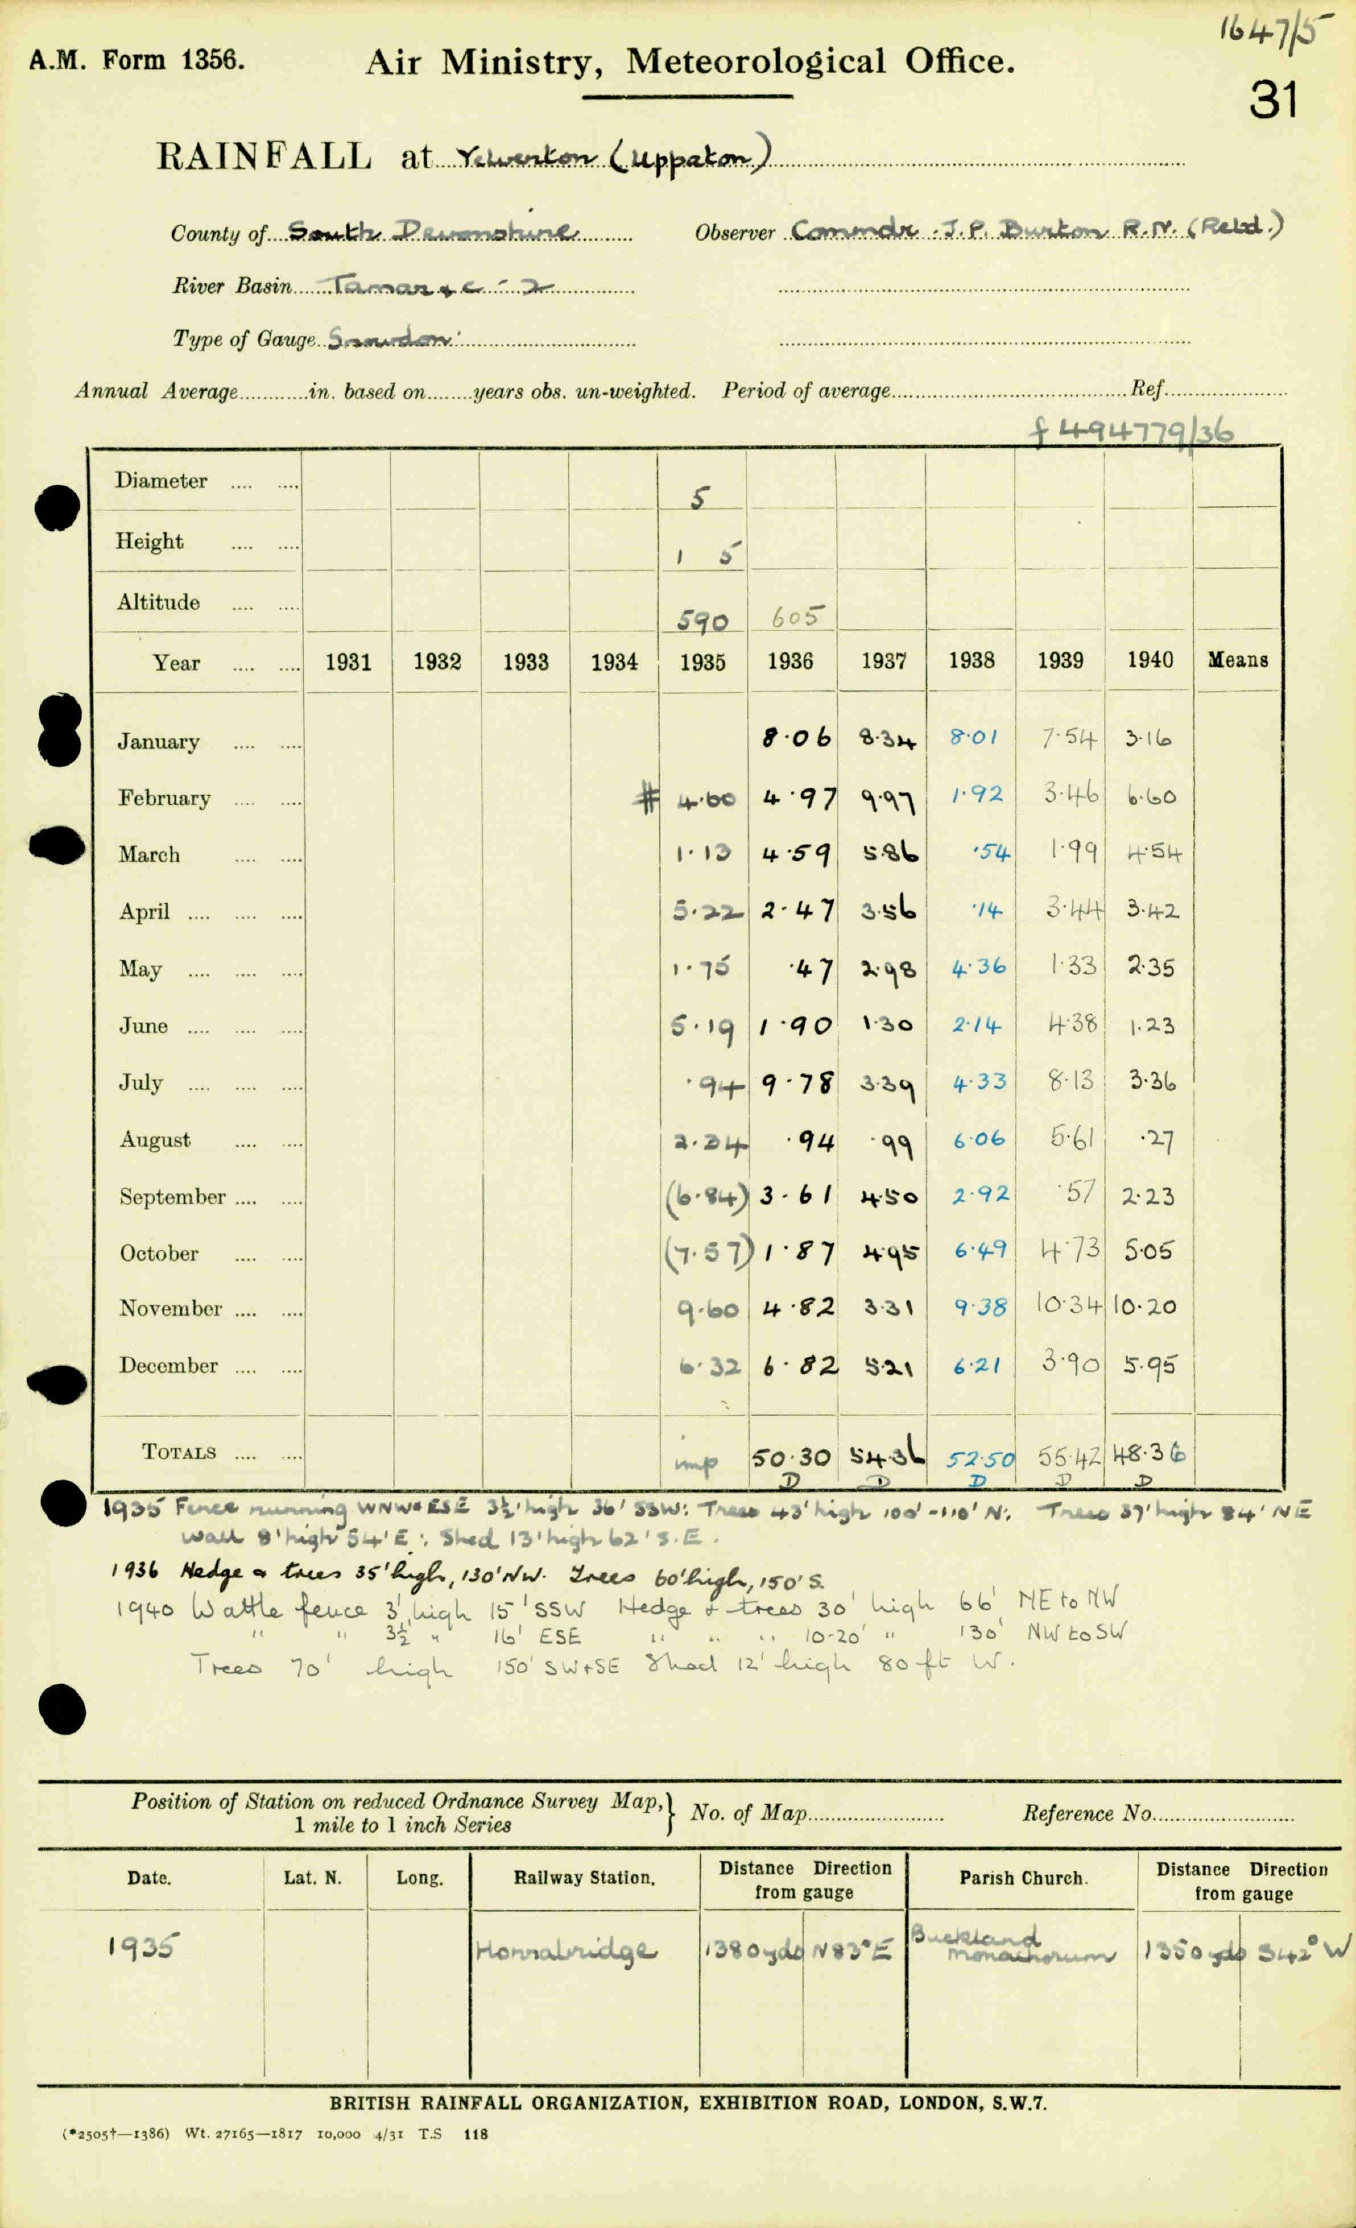 1647/5
A.M. Form 1356. Air Ministry, Meteorological Office.
31
RAINFALL at Yelverton (Uppaton)
County of South Devonshire Observer Commdr. J.P. Burton R.N. (Retd.)
River Basin Tamar &c - 2
Type of Gauge Snowdon
Annual Average in. based on years obs. un-weighted. Period of average Ref.
f 494779/36
Diameter .... .... 5
Height .... .... 1 5
Altitude .... .... 590 605
Year .... .... 1931 1932 1933 1934 1935 1936 1937 1938 1939 1940 Means
January .... .... 8.06 8.34 8.01 7.54 3.16
February .... .... # 4.60 4.97 9.97 1.92 3.46 6.60
March .... .... 1.13 4.59 5.86 .54 1.99 4.54
April .... .... .... 5.22 2.47 3.56 .14 3.44 3.42
May .... .... .... 1.75 .47 2.98 4.36 1.33 2.35
June .... .... .... 5.19 1.90 1.30 2.14 4.38 1.23
July .... .... .... .94 9.78 3.39 4.33 8.13 3.36
August .... .... 2.34 .94 .99 6.06 5.61 .27
September .... .... (6.84) 3.61 4.50 2.92 .57 2.23
October .... .... (7.57) 1.87 4.95 6.49 4.73 5.05
November .... .... 9.60 4.82 3.31 9.38 10.34 10.20
December .... .... 6.32 6.82 5.21 6.21 3.90 5.95
TOTALS .... .... imp 50.30 54.36 52.50 55.42 48.36
D D D D D
1935 Fence running WNW & ESE 3½' high 36' SSW: Trees 43' high 100'-110' N: Trees 37' high 84' NE
Wall 8' high 54' E: Shed 13' high 62' S.E.
1936 Hedge & trees 35' high, 130' NW. Trees 60' high, 150' S.
1940 Wattle fence 3' high 15' SSW Hedge & trees 30' high 66' NE to NW
" " 3½' " 16' ESE " " " 10-20' " 130' NW to SW
Trees 70' high 150' SW & SE Shed 12' high 80 ft W.
Position of Station on reduced Ordnance Survey Map, } No. of Map Reference No.
1 mile to 1 inch Series
Date. Lat. N. Long. Railway Station. Distance Direction from gauge Parish Church. Distance Direction from gauge
1935 Horrabridge 1380 yds N 83° E Buckland Monachorum 1350 yds S 42° W
BRITISH RAINFALL ORGANIZATION, EXHIBITION ROAD, LONDON, S.W.7.
(*2505†—1386) Wt. 27165—1817 10,000 4/31 T.S 118